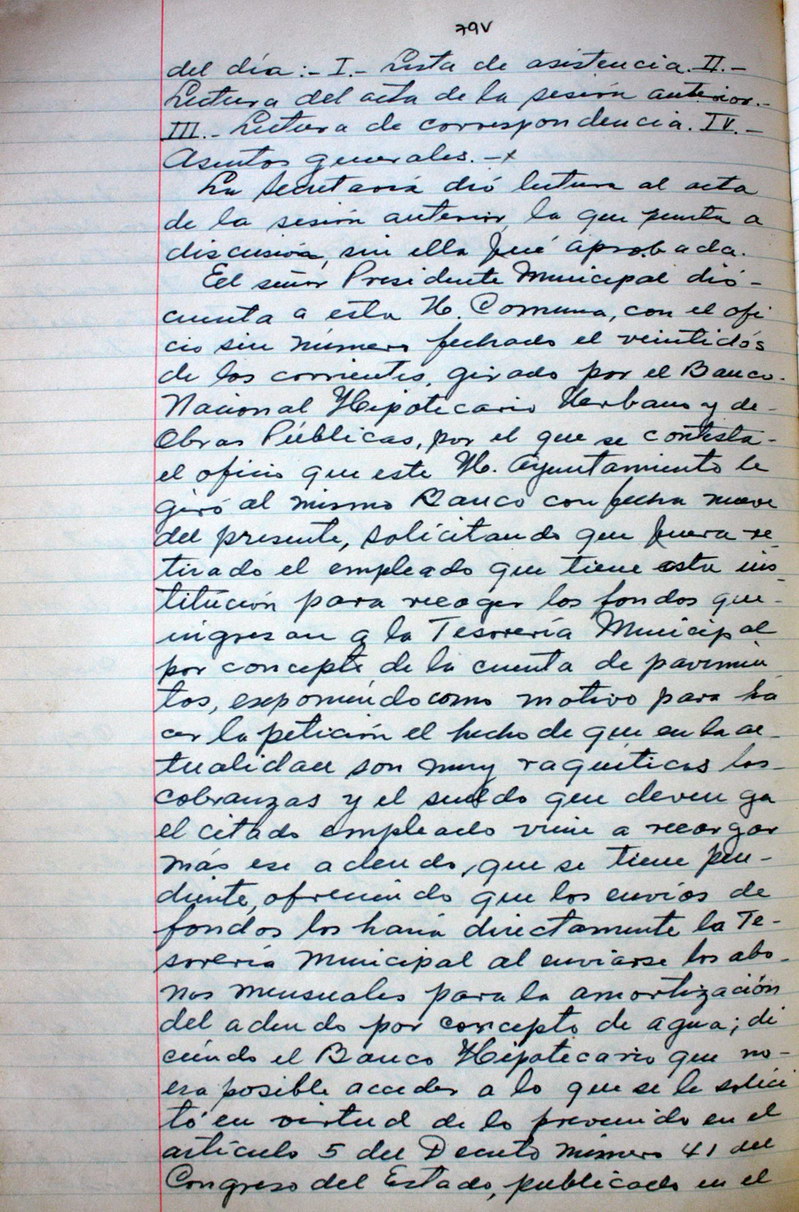 79V
del día:- I.- Lista de asistencia. II.-
Lectura del acta de la sesión anterior.-
III.- Lectura de correspondencia. IV.-
Asuntos generales.-x
La Secretaría dió lectura al acta
de la sesión anterior, la que puesta a
discusión, sin ella fué aprobada.
El señor Presidente Municipal dió-
cuenta a esta H. Comuna, con el ofi
cio sin número fechado el veintidós
de los corrientes, girado por el Banco-
Nacional Hipotecario Urbano y de-
Obras Públicas, por el que se contesta-
el oficio que este H. Ayuntamiento le
giró al mismo Banco con fecha nueve
del presente, solicitando que fuera re-
tirado el empleado que tiene esta ins
titución para recoger los fondos que-
ingresan a la Tesorería Municipal
por concepto de la cuenta de pavimen
tos, exponiendo como motivo para ha
cer la petición el hecho de que en la ac-
tualidad son muy raquíticas las-
cobranzas y el sueldo que devenga
el citado empleado viene a recargar
más ese adeudo, que se tiene pen-
diente, ofreciendo que los envíos de
fondos los haría directamente la Te-
sorería Municipal al enviarse los abo-
nos mensuales para la amortización
del adeudo por concepto de agua; di
ciendo el Banco Hipotecario que no-
era posible acceder a lo que se le solici
tó en virtud de lo prevenido en el
artículo 5 del Decreto número 41 del
Congreso del Estado, publicado en el